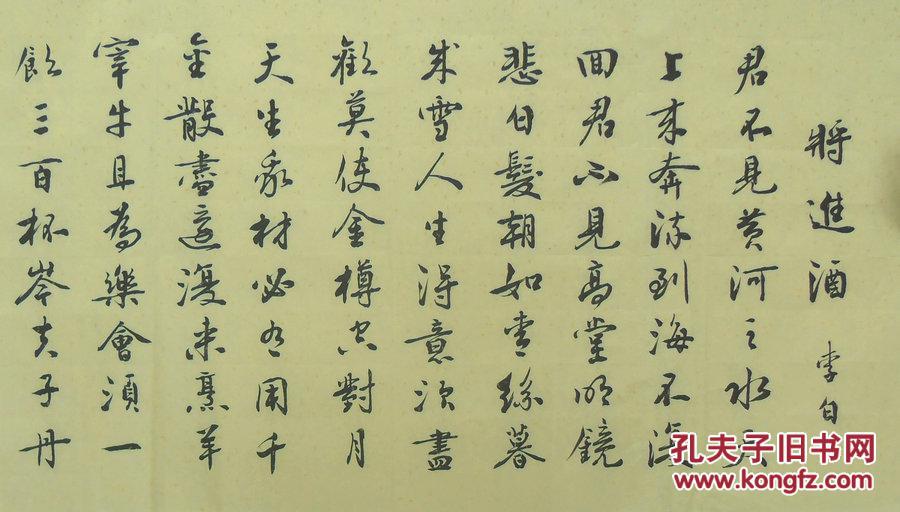 將進酒 李白
君不見黃河之水天
上来奔流到海不復
回君不見高堂明鏡
悲白髮朝如青絲暮
成雪人生得意須盡
歡莫使金樽空對月
天生我材必有用千
金散盡還復来烹羊
宰牛且為樂會須一
飲三百杯岑夫子丹
孔夫子旧书网
www.kongfz.com